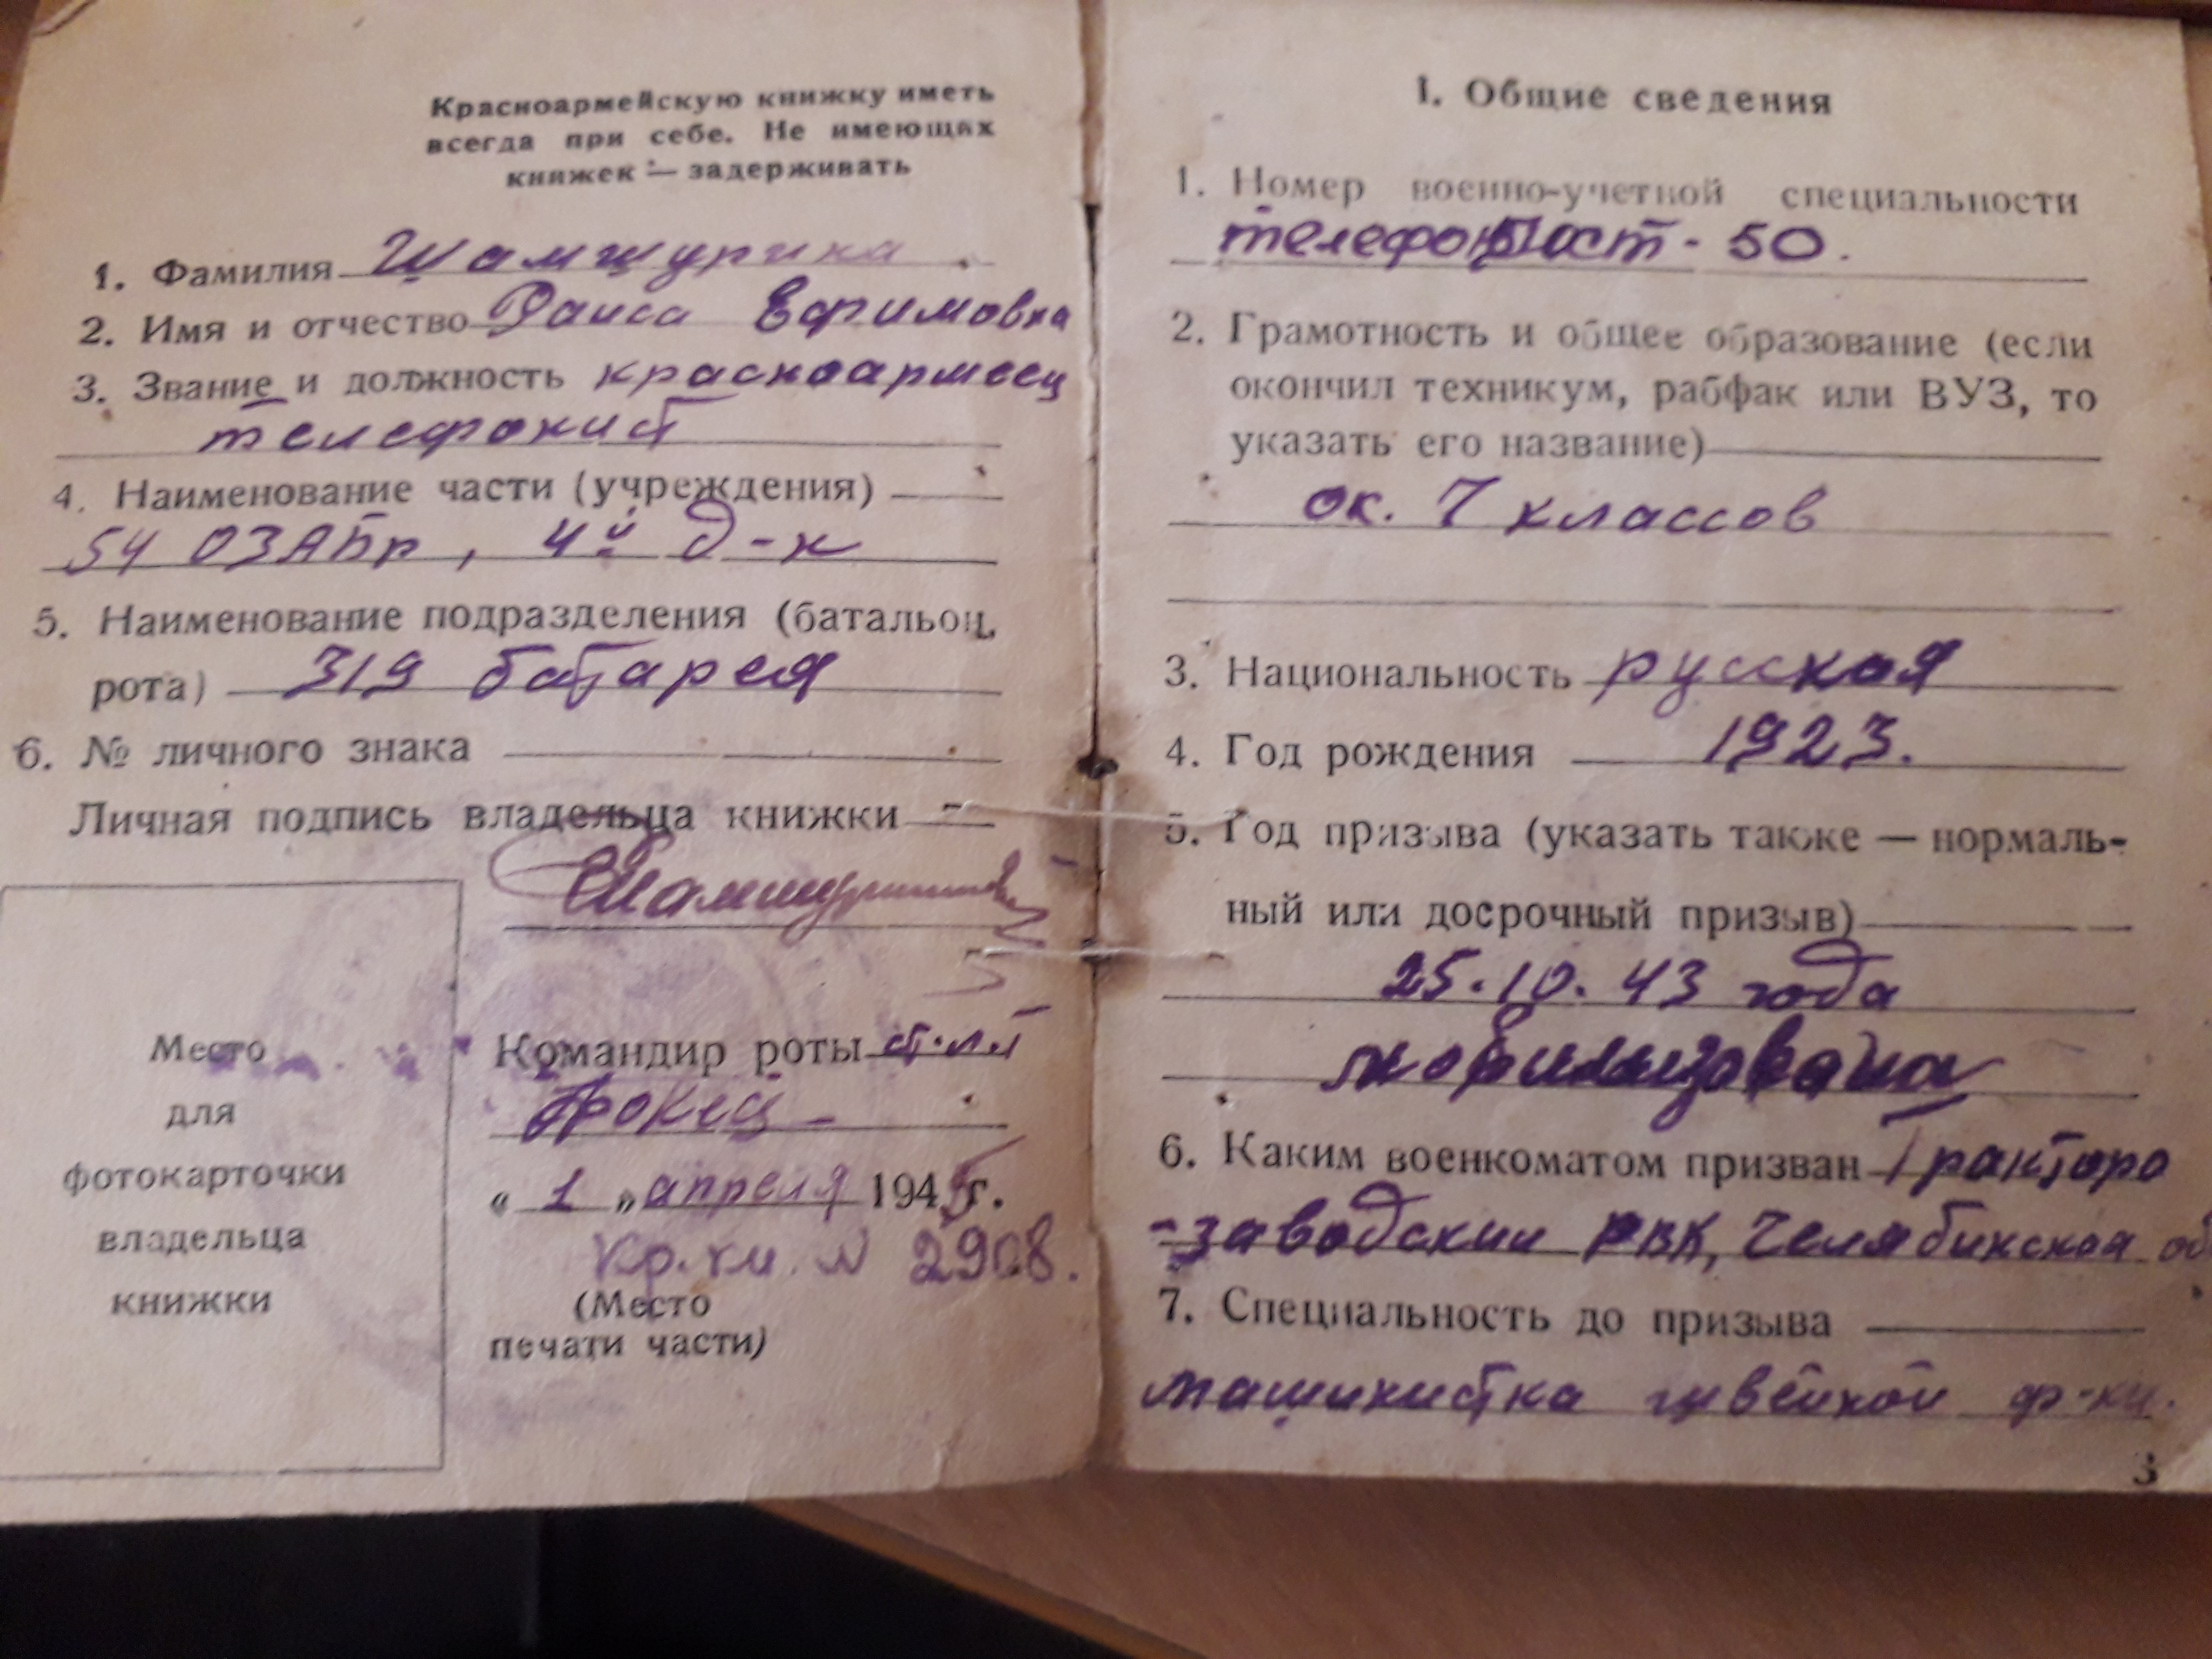 Красноармейскую книжку иметь
всегда при себе. Не имеющих
книжек — задерживать
1. Фамилия Шамшурина
2. Имя и отчество Раиса Ефимовна
3. Звание и должность красноармеец
телефонист
4. Наименование части (учреждения)
54 ОЗАБр, 4й д-н
5. Наименование подразделения (батальон,
рота) 319 батарея
6. № личного знака
Личная подпись владельца книжки
Место
для
фотокарточки
владельца
книжки
Командир роты ст. л-т
"1" апреля 1945г.
Кр. кн. N 2908.
(Место
печати части)
1. Общие сведения
1. Номер военно-учетной специальности
телефонист - 50.
2. Грамотность и общее образование (если
окончил техникум, рабфак или ВУЗ, то
указать его название)
ок. 7 классов
3. Национальность русская
4. Год рождения 1923.
5. Год призыва (указать также — нормаль-
ный или досрочный призыв)
25.10.43 года
мобилизована
6. Каким военкоматом призван Тракторо
-заводский РВК, Челябинская об
7. Специальность до призыва
машинистка швейной ф-ки.
3